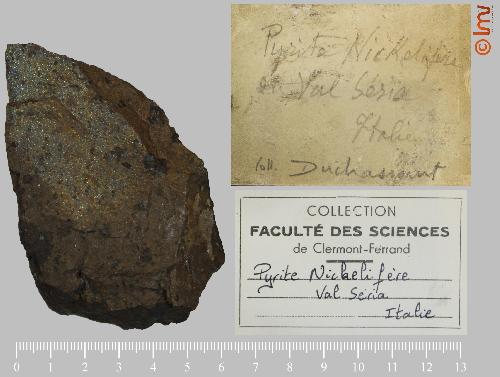 Pyrite Nickelifère
Val Séria
Italie
Coll. Duchassaint
COLLECTION
FACULTÉ DES SCIENCES
de Clermont-Ferrand
Pyrite Nickelifère
Val Séria
Italie
0 1 2 3 4 5 6 7 8 9 10 11 12 13
© lmv